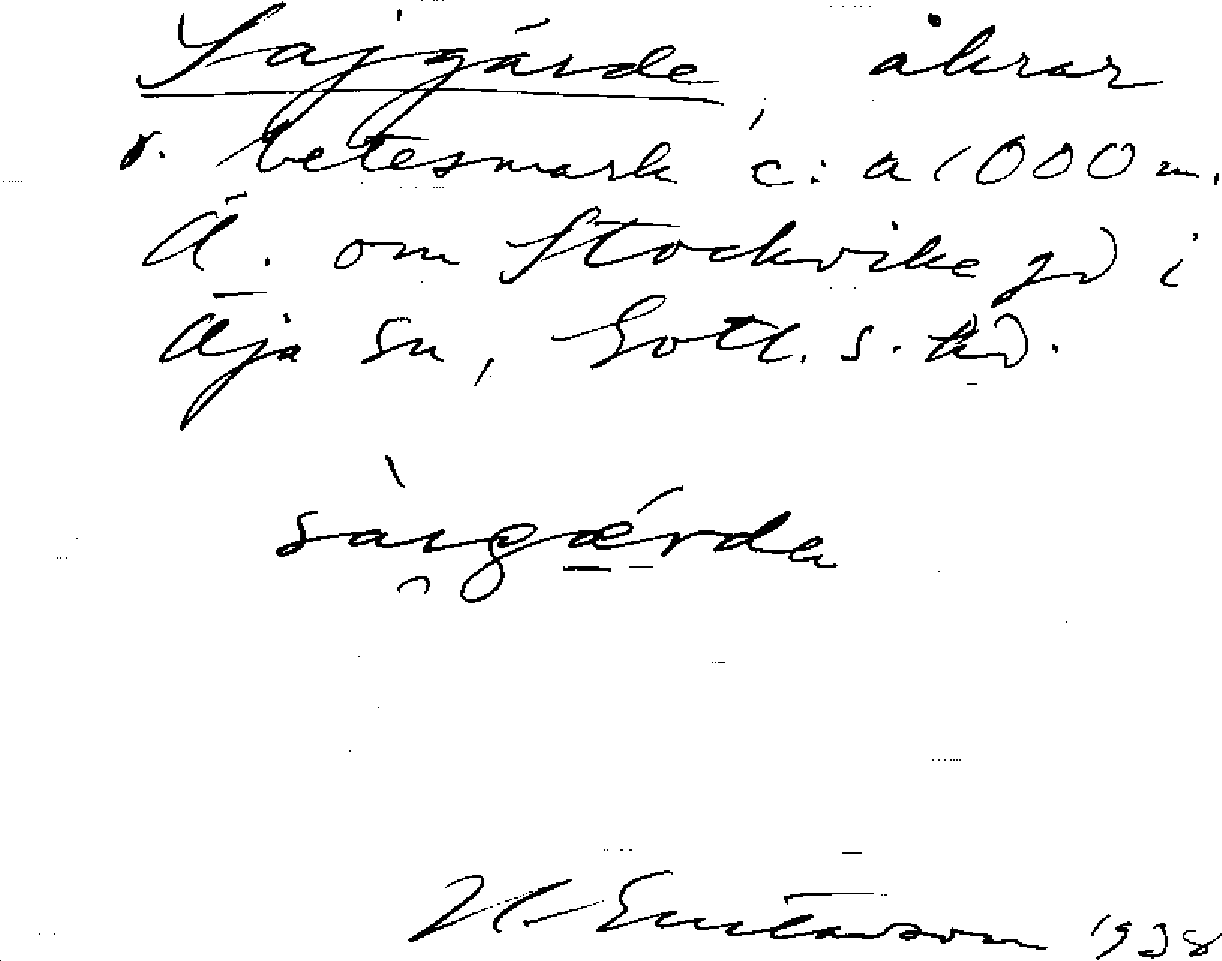 Sajgärde, åkrar
o. betesmark c:a 1000 m.
Ö. om Stockvike gd i
Öja sn, Gotl. s. hd.
sàigǽrda
H. Gustavson 1938